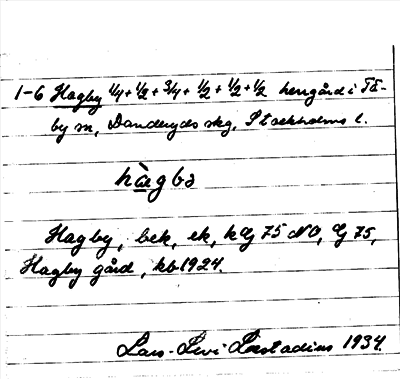 1-6 Hagby 1/4 + 1/2 + 3/4 + 1/2 + 1/2 + 1/2 herrgård i Tä-
by sn, Danderyds skg, Stockholms l.
hàgb
Hagby, bek, ek, k 75 NO, 75,
Hagby gård, kb 1924.
Lars-Levi Læstadius 1934.